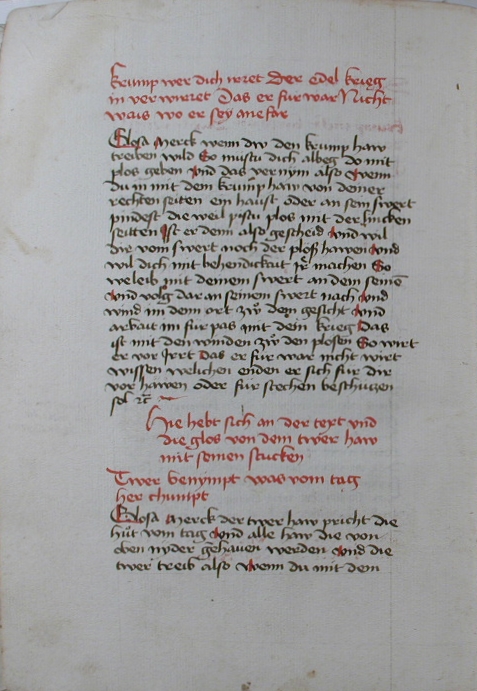 Krump wer dich irret Der edel krieg
in verwirret Das er fur war Nicht
wais wo er sey ane far
Glosa Merck wenn dw den krump haw
treiben wild So mustu dich albeg do mit
plos geben Vnd das vernym also Wenn
du im mit dem krump haw von deiner
rechten seiten ein haust oder an sein swert
pindest die weil pistu plos mit der lincken
seitten Ist er denn also gescheid Vnd wil
dir vom swert noch der ploß hawen Vnd
wil dich mit behendickait irr machen So
weleib mit deinem swert an dem seinē
Vnd volg dar an seinem swert nach Vnd
wind im denn ort zw dem gesicht Vnd
arbait im fur pas mit dem krieg Das
ist mit den winden zw den plosen So wirt
er vor Irrt Das er fur war nicht wirt
wissen welichen enden er sich fur dir
vor hawen oder fur stechen beschutzen
sol rc̄
Hie hebt sich an der text vnd
die glos von dem twer haw
mit seinen stucken
Twer benympt was vom tag
her chumpt
Glosa Merck der twer haw pricht die
hut vom tag Vnd alle haw die von
oben nyder gehauen werden Vnd die
twer treib also Wenn du mit dem